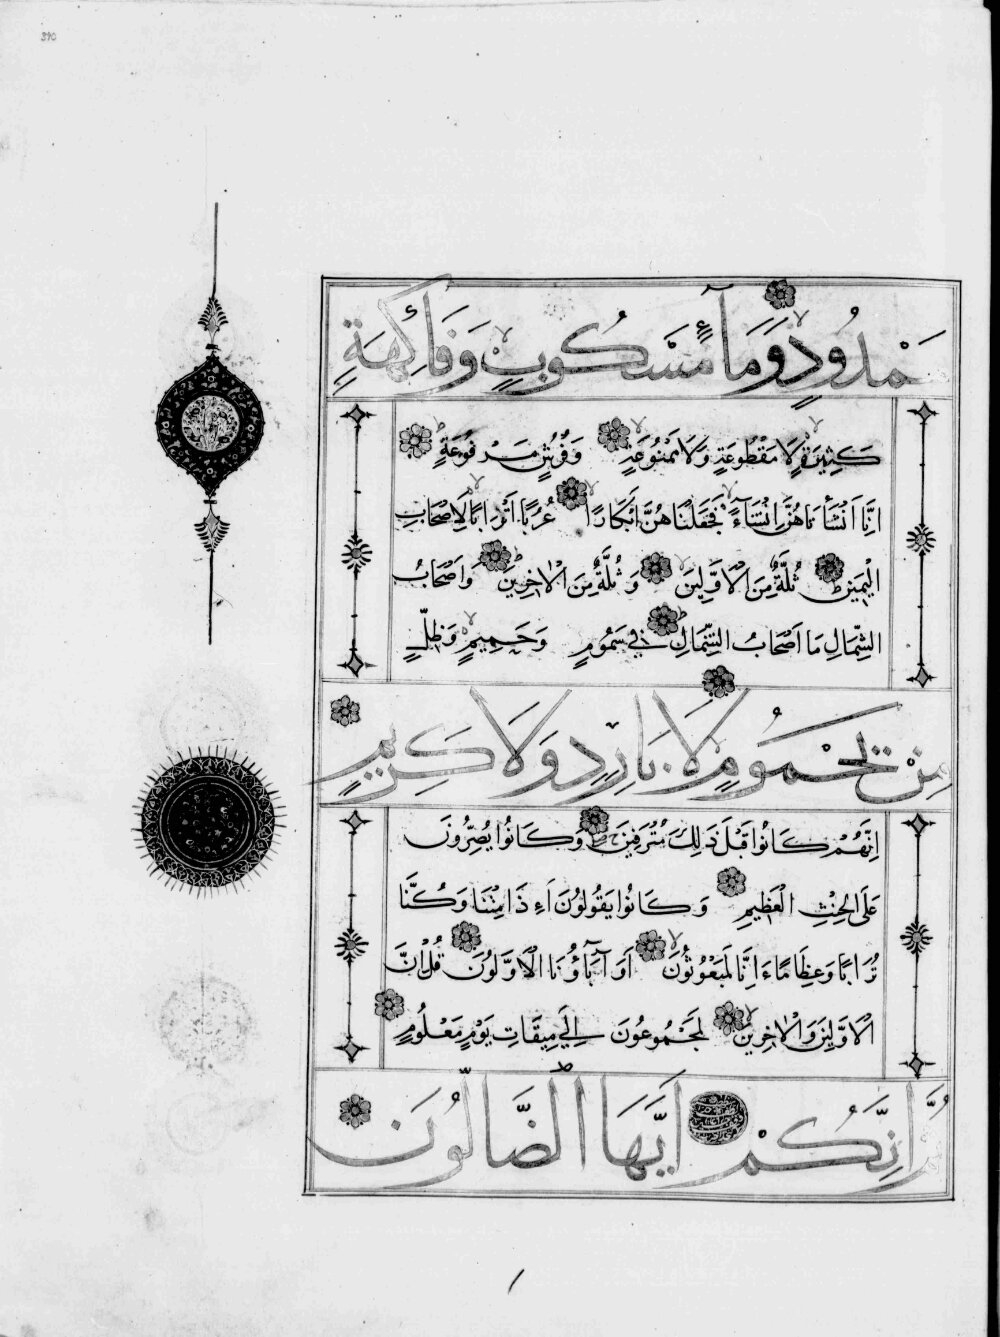 مَمْدُودٍ وَمَآءٍ مَسْكُوبٍ وَفَاكِهَةٍ
كَثِيرَةٍ لَا مَقْطُوعَةٍ وَلَا مَمْنُوعَةٍ وَفُرُشٍ مَرْفُوعَةٍ
اِنَّا اَنْشَأْنَاهُنَّ اِنْشَآءً فَجَعَلْنَاهُنَّ اَبْكَارًا عُرُبًا اَتْرَابًا لِاَصْحَابِ
الْيَمِينِ ثُلَّةٌ مِنَ الْاَوَّلِينَ وَثُلَّةٌ مِنَ الْاٰخِرِينَ وَاَصْحَابُ
الشِّمَالِ مَا اَصْحَابُ الشِّمَالِ فِي سَمُومٍ وَحَمِيمٍ وَظِلٍّ
مِنْ يَحْمُومٍ لَا بَارِدٍ وَلَا كَرِيمٍ
اِنَّهُمْ كَانُوا قَبْلَ ذَلِكَ مُتْرَفِينَ وَكَانُوا يُصِرُّونَ
عَلَى الْحِنْثِ الْعَظِيمِ وَكَانُوا يَقُولُونَ اَءِذَا مِتْنَا وَكُنَّا
تُرَابًا وَعِظَامًا ءَاِنَّا لَمَبْعُوثُونَ اَوَ آبَآؤُنَا الْاَوَّلُونَ قُلْ اِنَّ
الْاَوَّلِينَ وَالْاٰخِرِينَ لَمَجْمُوعُونَ اِلَى مِيقَاتِ يَوْمٍ مَعْلُومٍ
ثُمَّ اِنَّكُمْ اَيُّهَا الضَّالُّونَ